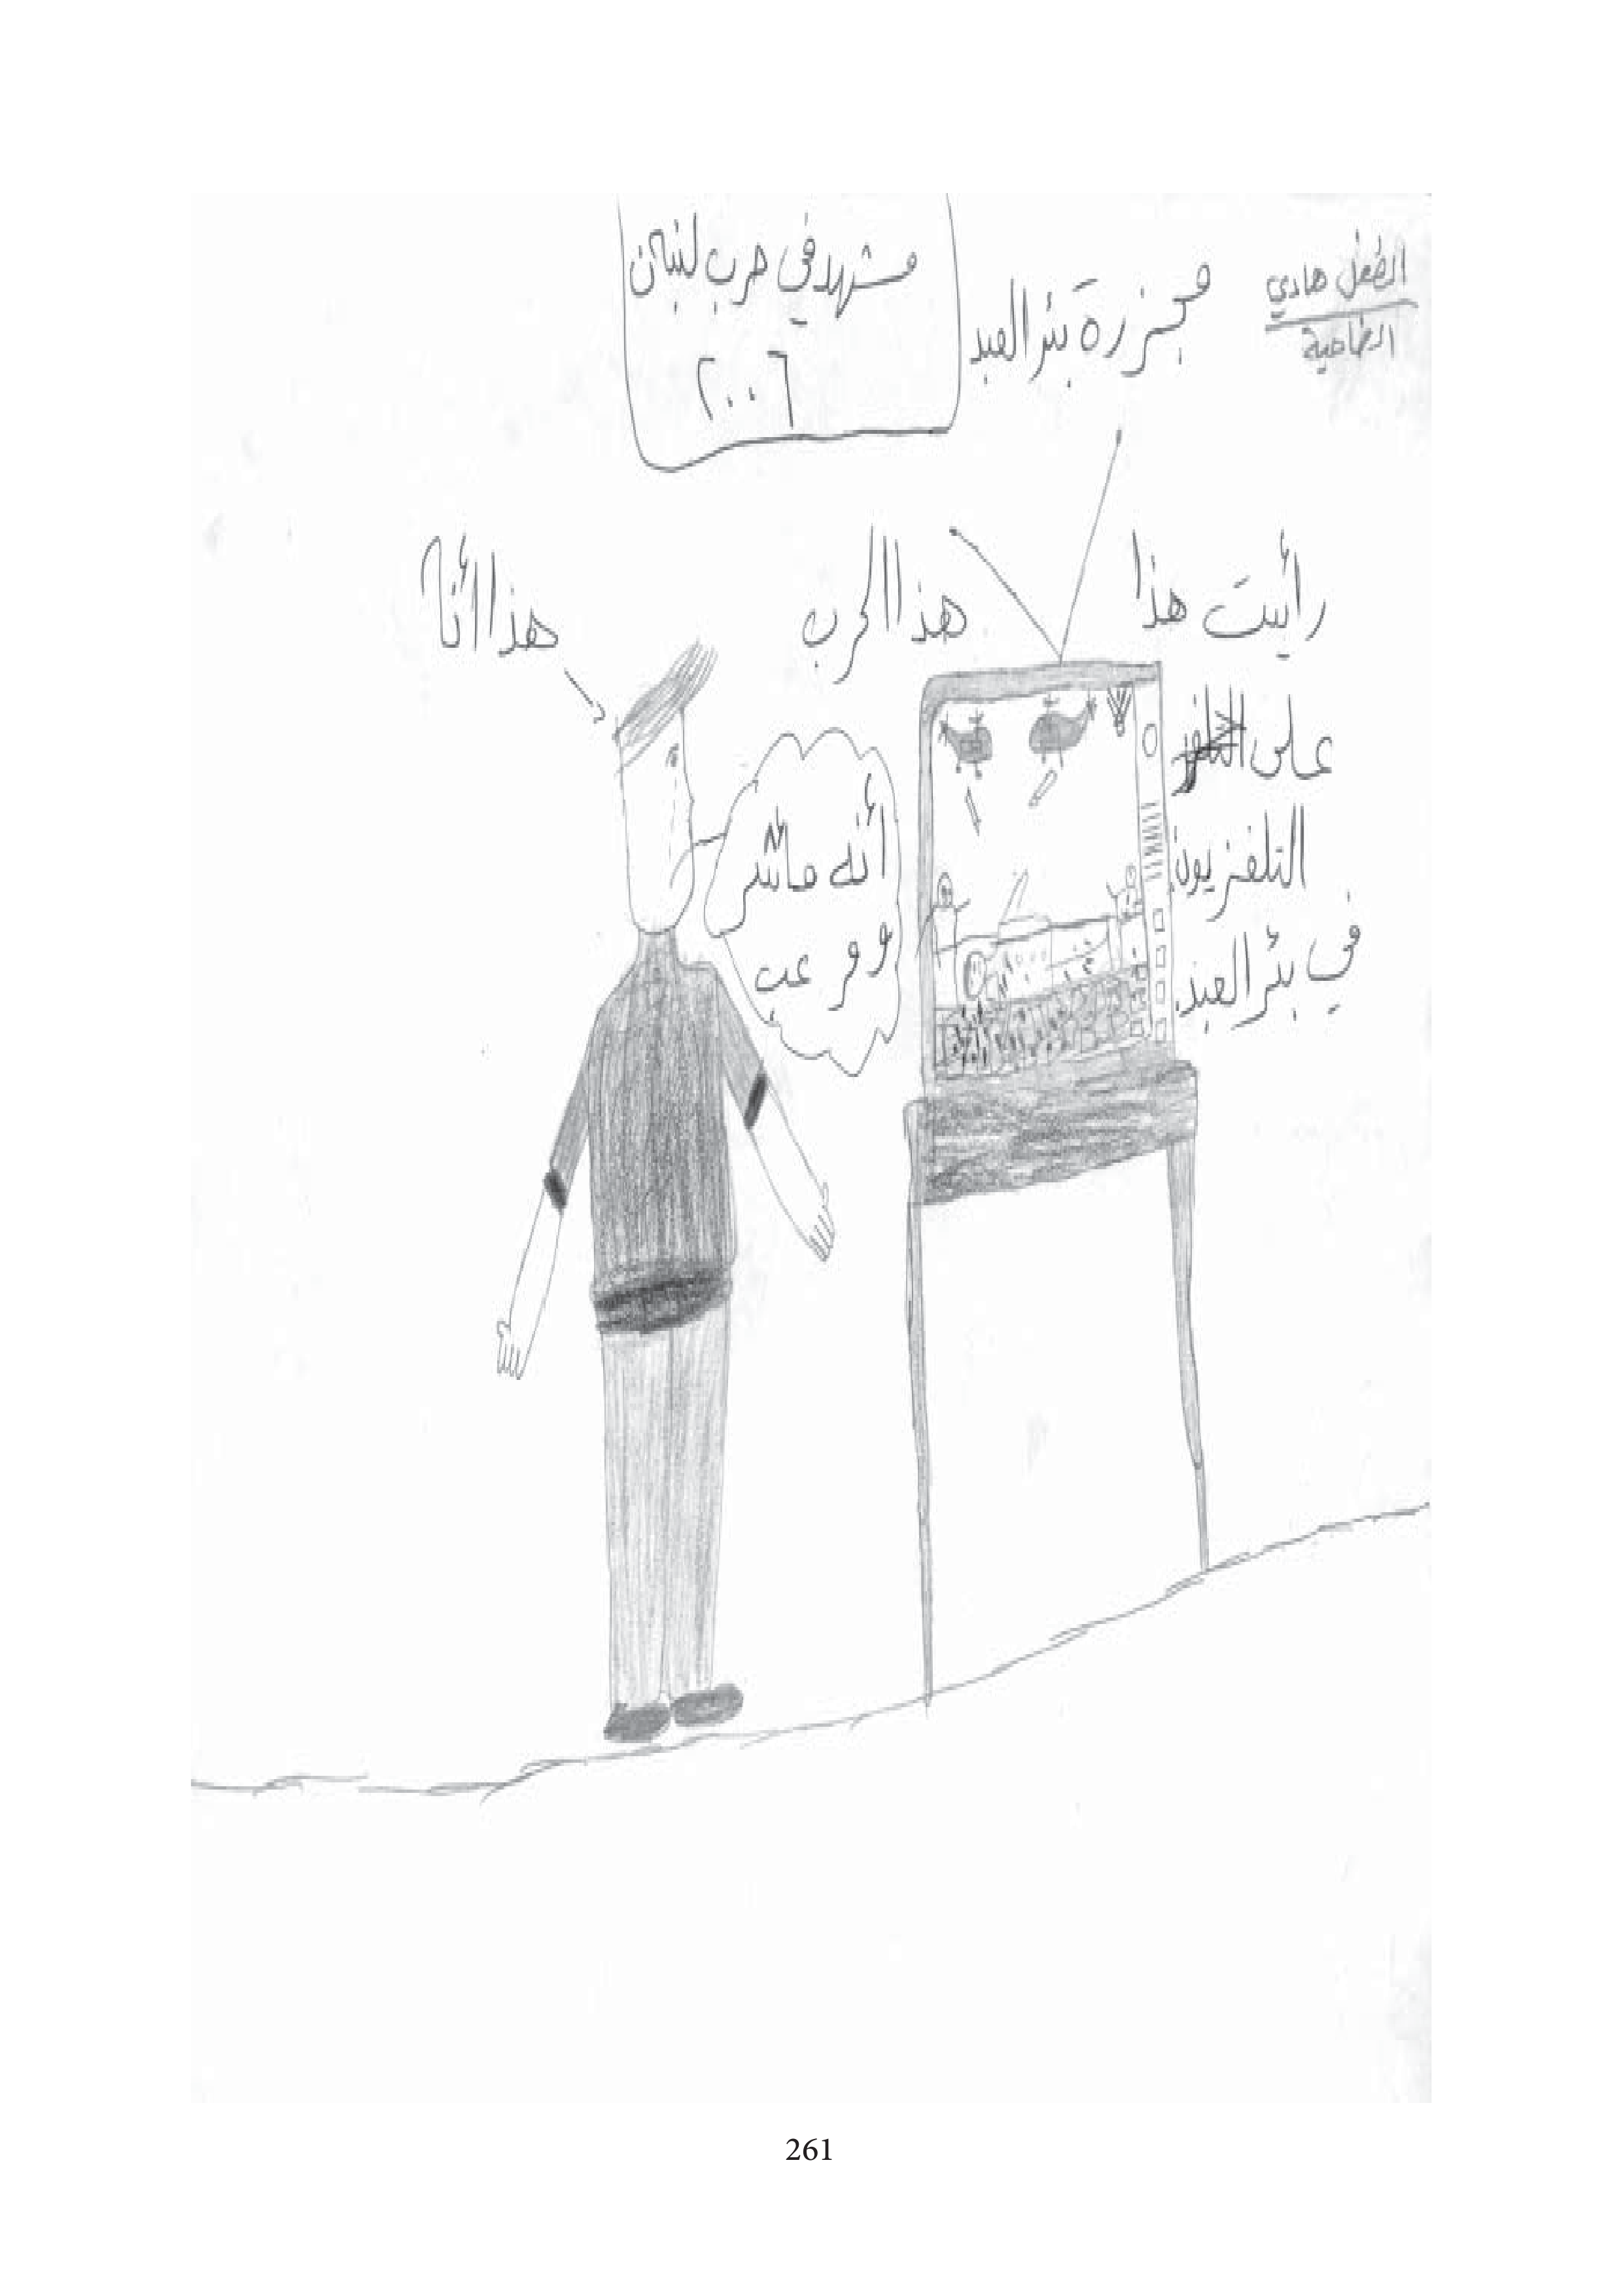 الطفل هادي
الضاحية
مجزرة بئر العبد
مشهد في حرب لبنان
٢٠٠٦
رأيت هذا
على
التلفزيون
في بئر العبد.
هذا الحرب
هذا أنا
أنه
ومرعب
261